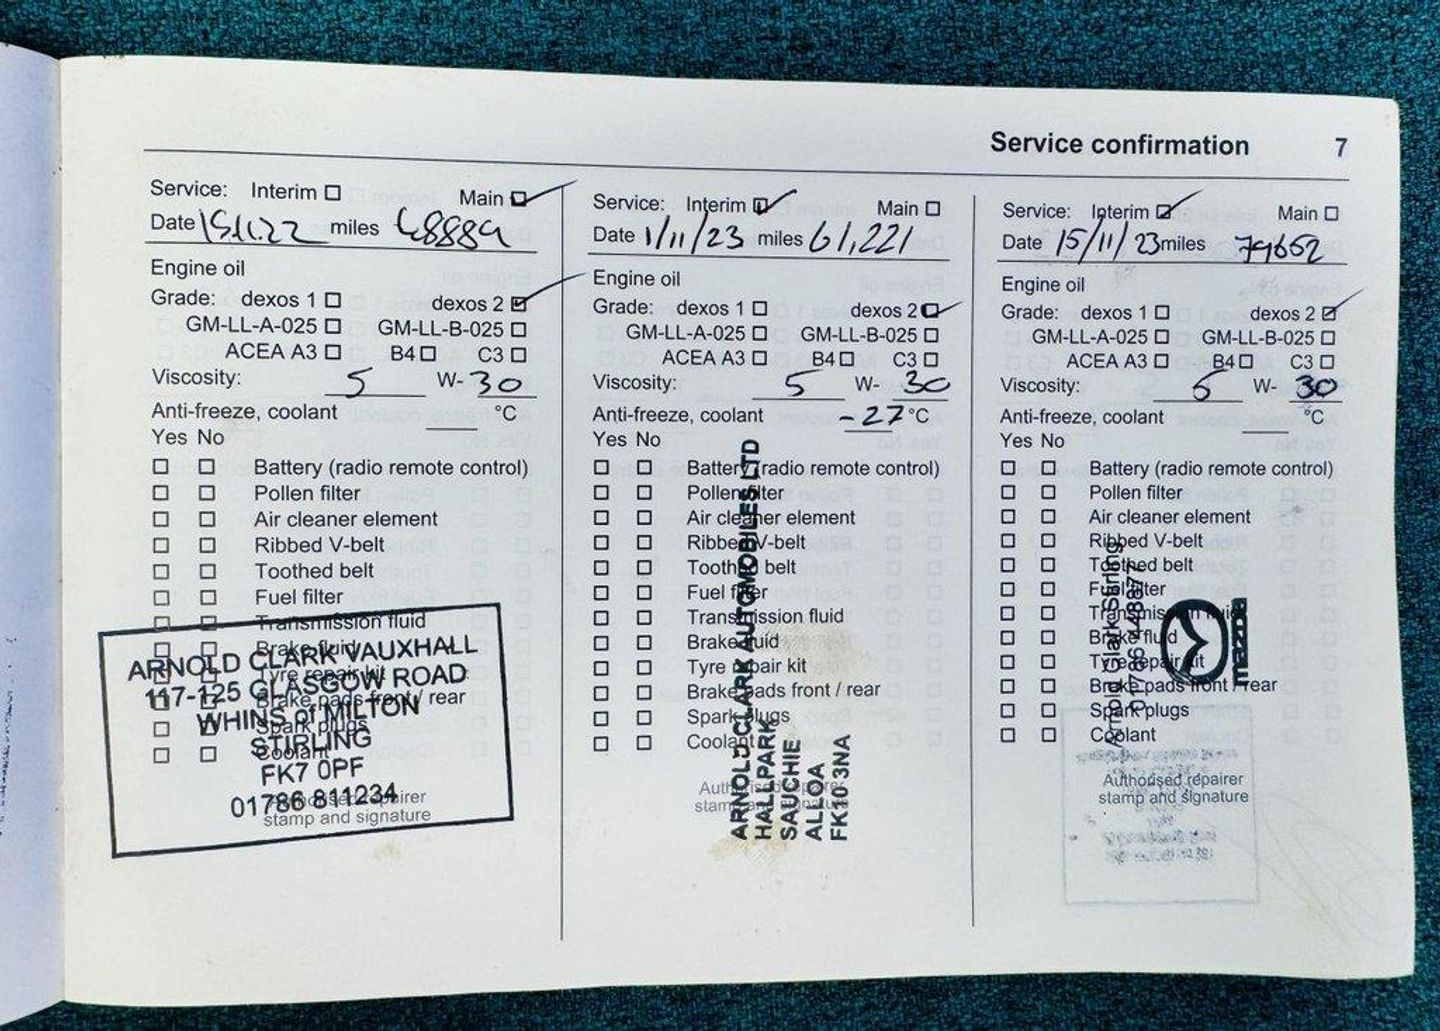 Service confirmation 7
Service: Interim Main
Date 15.11.22 miles 48889
Engine oil
Grade: dexos 1 dexos 2
GM-LL-A-025 GM-LL-B-025
ACEA A3 B4 C3
Viscosity: 5 W- 30
Anti-freeze, coolant °C
Yes No
Battery (radio remote control)
Pollen filter
Air cleaner element
Ribbed V-belt
Toothed belt
Fuel filter
Transmission fluid
Brake fluid
Tyre repair kit
Brake pads front / rear
Spark plugs
Coolant
Authorised repairer
stamp and signature
ARNOLD CLARK VAUXHALL
117-125 GLASGOW ROAD
WHINS of MILTON
STIRLING
FK7 0PF
01786 811234
Service: Interim Main
Date 1/11/23 miles 61,221
Engine oil
Grade: dexos 1 dexos 2
GM-LL-A-025 GM-LL-B-025
ACEA A3 B4 C3
Viscosity: 5 W- 30
Anti-freeze, coolant -27 °C
Yes No
Battery (radio remote control)
Pollen filter
Air cleaner element
Ribbed V-belt
Toothed belt
Fuel filter
Transmission fluid
Brake fluid
Tyre repair kit
Brake pads front / rear
Spark plugs
Coolant
Authorised repairer
stamp and signature
ARNOLD CLARK AUTOMOBILES LTD
HALLPARK
SAUCHIE
ALLOA
FK10 3NA
Service: Interim Main
Date 15/11/23 miles 79652
Engine oil
Grade: dexos 1 dexos 2
GM-LL-A-025 GM-LL-B-025
ACEA A3 B4 C3
Viscosity: 5 W- 30
Anti-freeze, coolant °C
Yes No
Battery (radio remote control)
Pollen filter
Air cleaner element
Ribbed V-belt
Toothed belt
Fuel filter
Transmission fluid
Brake fluid
Tyre repair kit
Brake pads front / rear
Spark plugs
Coolant
Authorised repairer
stamp and signature
Arnold Clark Stirling
mazda